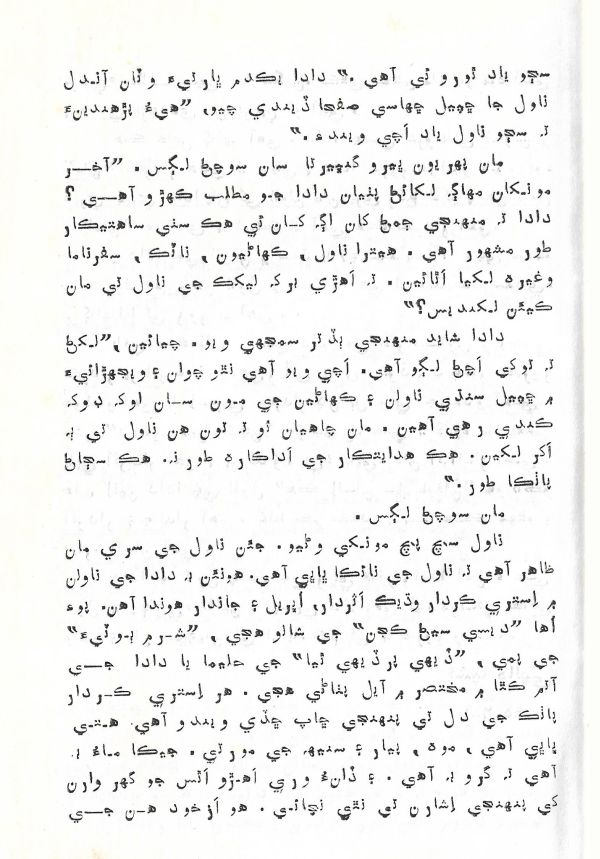 سڄو ياد ٿورو ئي آهي.“ دادا يڪدم ڀارتيءَ وٽان آندل
ناول جا ڇپيل ڇهاسي صفحا ڏيندي چيو، ”هيءُ پڙهندينءَ
ته سڄو ناول ياد اَچي ويندءِ.“
مان پهريون ڀيرو گنڀيرتا سان سوچڻ لڳس. ”آخر
مونکان مهاڳ لکائڻ پٺيان دادا جو مطلب ڪهڙو آهي؟
دادا ته منهنجي ڄمڻ کان اڳ کان ئي هڪ سٺي ساهتيڪار
طور مشهور آهي. هيترا ناول، ڪهاڻيون، ناٽڪ، سفرناما
وغيره لکيا اَٿائين. ته اَهڙي برک ليکڪ جي ناول تي مان
ڪيئن لکندس؟“
دادا شايد منهنجي ٻڏتر سمجهي ويو. چيائين، ”لکڻ
ته توکي اَچڻ لڳو آهي. اَچي ويو آهي نٿو چوان ۽ ويجهڙائيءَ
۾ ڇپيل سنڌي ناولن ۽ ڪهاڻين جي مون سان اوک ڊوک
ڪندي رهي آهين. مان چاهيان ٿو ته تون هن ناول تي به
اَکر لکين. هڪ هدايتڪار جي اَداڪاره طور نه. هڪ سڄاڻ
پاٺڪا طور.“
مان سوچڻ لڳس.
ناول سچ پچ مونکي وڻيو. جيئن ناول جي سري مان
ظاهر آهي ته ناول جي نائڪا ڀاڀي آهي. هونئن به دادا جي ناولن
۾ اِستري ڪردار وڌيڪ اَثردار، اُڀريل ۽ جاندار هوندا آهن. پوءِ
اُها ”ديسي سيڻ ڪجن“ جي شالو هجي، ”شرم ٻوٽيءَ“
جي پمي، ”ڏيهي پرڏيهي ٿيا“ جي حليما يا دادا جي
آتم ڪٿا ۾ مختصر ۾ آيل ٻناڻي هجي. هر اِستري ڪردار
پاٺڪ جي دل تي پنهنجي ڇاپ ڇڏي ويندو آهي. هتي
ڀاڀي آهي، موه، پيار ۽ سنيهه جي مورتي. جيڪا ماءُ به
آهي ته گرو به آهي. ۽ ڏانءُ وري اَهڙو اَٿس جو گهر وارن
کي پنهنجي اِشارن تي نٿي نچائي. هو اَزخود هن جي